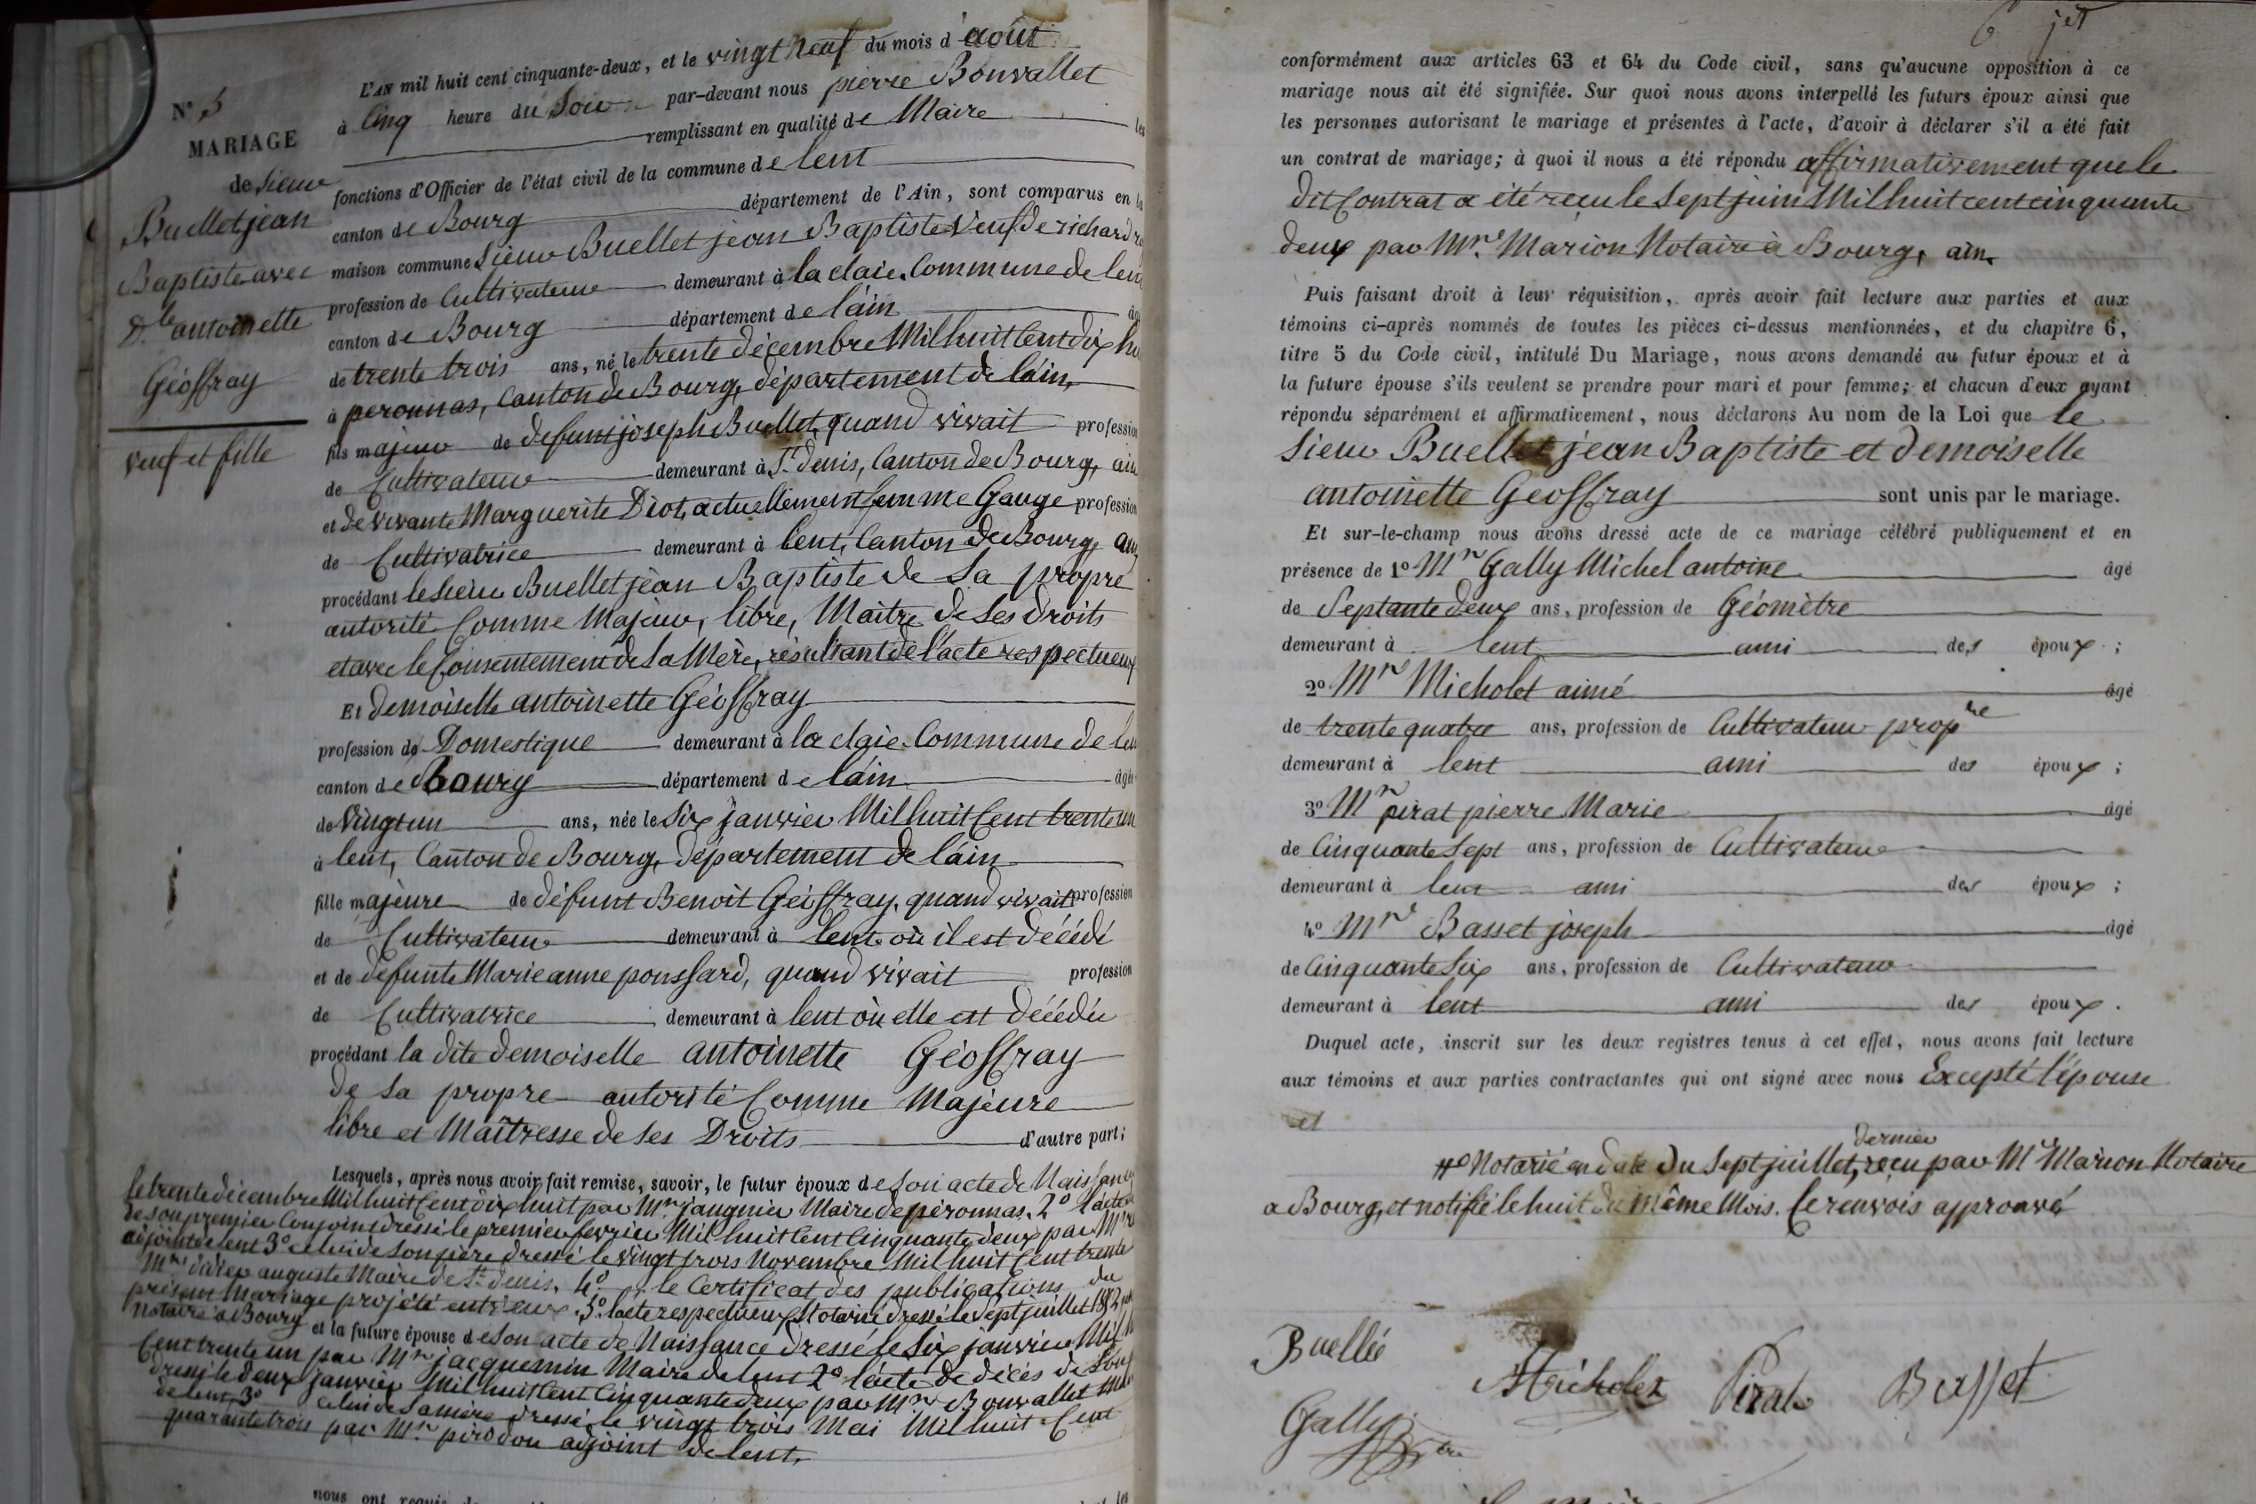 N° 5
MARIAGE
de Sieur
Buellet jean
Baptiste avec
D.lle antoinette
Géoffray
veuf et fille
L'AN mil huit cent cinquante-deux, et le vingt neuf du mois d'août
à Cinq heure du Soir par-devant nous pierre Bonvallet
remplissant en qualité de Maire les
fonctions d'Officier de l'état civil de la commune de lent
canton de Bourg département de l'Ain, sont comparus en la
maison commune Sieur Buellet jean Baptiste Veuf de richard
profession de Cultivateur demeurant à la claie Commune de lent
canton de Bourg département de láin âgé
de trente trois ans, né le trente décembre Mil huit Cent dix hu
à peronnas, Canton de Bourg, département de láin,
fils majeur de defunt joseph Buellet, quand vivait profession
de Cultivateur demeurant à St. denis, Canton de Bourg, ain
et de vivante Marguerite Diot, actuellement femme Gauge profession
de Cultivatrice demeurant à lent, Canton de Bourg, ain,
procédant le Sieur Buellet jean Baptiste de Sa propre
autorité Comme Majeur, libre, Maitre de Ses droits
et avec le Consentement de Sa Mère, résultant de l'acte respectueux
Et demoiselle antoinette Géoffray
profession de Domestique demeurant à la claie Commune de len
canton de Bourg département de láin âgée
de Vingt un ans, née le Six janvier Mil huit Cent trente un
à lent, Canton de Bourg, département de láin
fille majeure de défunt Benoit Géoffray, quand vivait profession
de Cultivateur demeurant à lent où il est décédé
et de défunte Marie anne poussard, quand vivait profession
de Cultivatrice demeurant à lent où elle est décédée
procédant la dite demoiselle antoinette Géoffray
de sa propre autorité Comme Majeure
libre et Maîtresse de Ses Droits d'autre part;
Lesquels, après nous avoir fait remise, savoir, le futur époux de Son acte de Naissance
le trente décembre Mil huit Cent dix huit par Mr. jauguier Maire de péronnas. 2° l'acte
de son premier Conjoint dressé le premier fevrier Mil huit Cent Cinquante deux par Mr
adjoint de lent 3° celui de Son père dressé le vingt trois Novembre Mil huit Cent trente
Mr. auguste Maire de St. denis. 4° le Certificat des publications du
présent Mariage projété entr'eux. 5° l'acte respectueux Notarié dressé le Sept juillet 1852 par
Notaire à Bourg et la future épouse de Son acte de Naissance dressé le Six janvier Mil h
Cent trente un par Mr jacquemin Maire de lent 2° l'acte de décès de Son
dressé le deux janvier Mil huit Cent Cinquante deux par Mr. Bonvallet Maire
de lent 3° celui de Sa mère dressé le vingt trois Mai Mil huit Cent
quarante trois par Mr. pirodon adjoint de lent.
nous ont requis
6 jet
conformément aux articles 63 et 64 du Code civil, sans qu'aucune opposition à ce
mariage nous ait été signifiée. Sur quoi nous avons interpellé les futurs époux ainsi que
les personnes autorisant le mariage et présentes à l'acte, d'avoir à déclarer s'il a été fait
un contrat de mariage; à quoi il nous a été répondu affirmativement que le
dit Contrat a été reçu le Sept juin Mil huit cent cinquante
deux par Mre. Marion Notaire à Bourg, ain.
Puis faisant droit à leur réquisition, après avoir fait lecture aux parties et aux
témoins ci-après nommés de toutes les pièces ci-dessus mentionnées, et du chapitre 6,
titre 5 du Code civil, intitulé Du Mariage, nous avons demandé au futur époux et à
la future épouse s'ils veulent se prendre pour mari et pour femme; et chacun d'eux ayant
répondu séparément et affirmativement, nous déclarons Au nom de la Loi que le
Sieur Buellet jean Baptiste et demoiselle
antoinette Geoffray sont unis par le mariage.
Et sur-le-champ nous avons dressé acte de ce mariage célébré publiquement et en
présence de 1° Mr Gally Michel antoine âgé
de Septante deux ans, profession de Géomètre
demeurant à lent ami des époux ;
2° Mr Micholet aimé âgé
de trente quatre ans, profession de Cultivateur propre
demeurant à lent ami des époux ;
3° Mr pirat pierre Marie âgé
de Cinquante Sept ans, profession de Cultivateur
demeurant à lent ami des époux ;
4° Mr Basset joseph âgé
de Cinquante Six ans, profession de Cultivateur
demeurant à lent ami des époux .
Duquel acte, inscrit sur les deux registres tenus à cet effet, nous avons fait lecture
aux témoins et aux parties contractantes qui ont signé avec nous Excepté l'épouse
et
dernier
Notarié en date du Sept juillet, reçu par Me Marion Notaire
a Bourg, et notifié le huit du même Mois. Ce renvois approuvé
Buellée
Micholet Pirat Basset
Gally